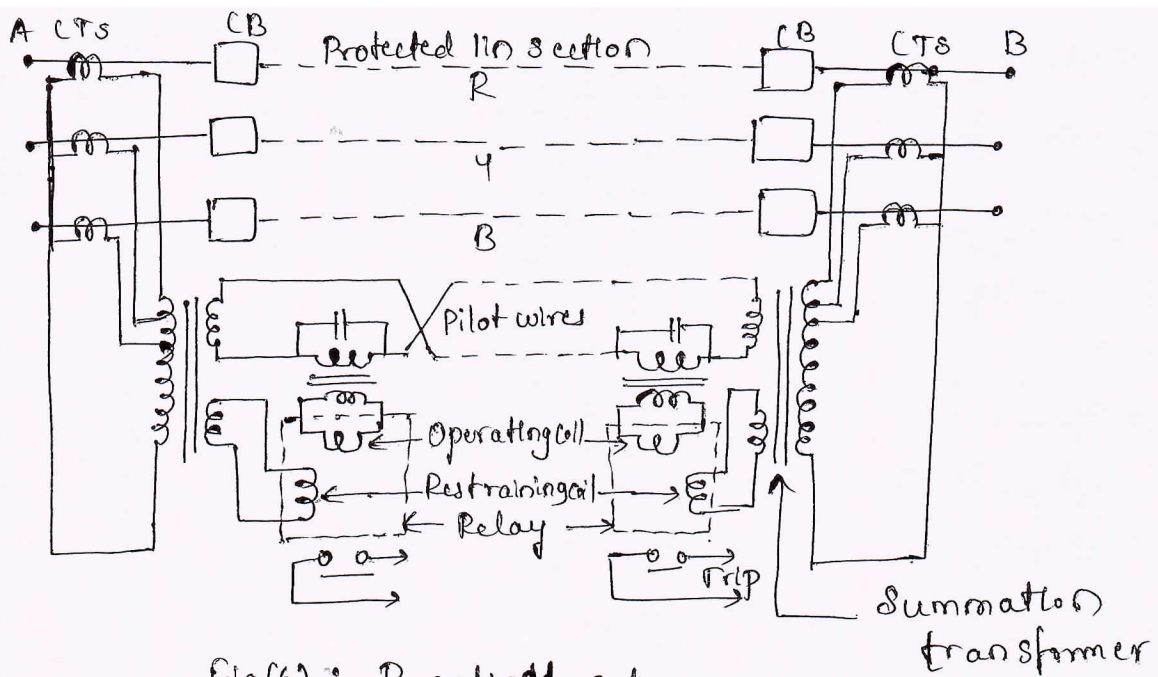 A CTS CB Protected lin section CB CTS B
R
Y
B
Pilot wires
Operating coil
Restraining coil
Relay
Trip
Summation
transformer